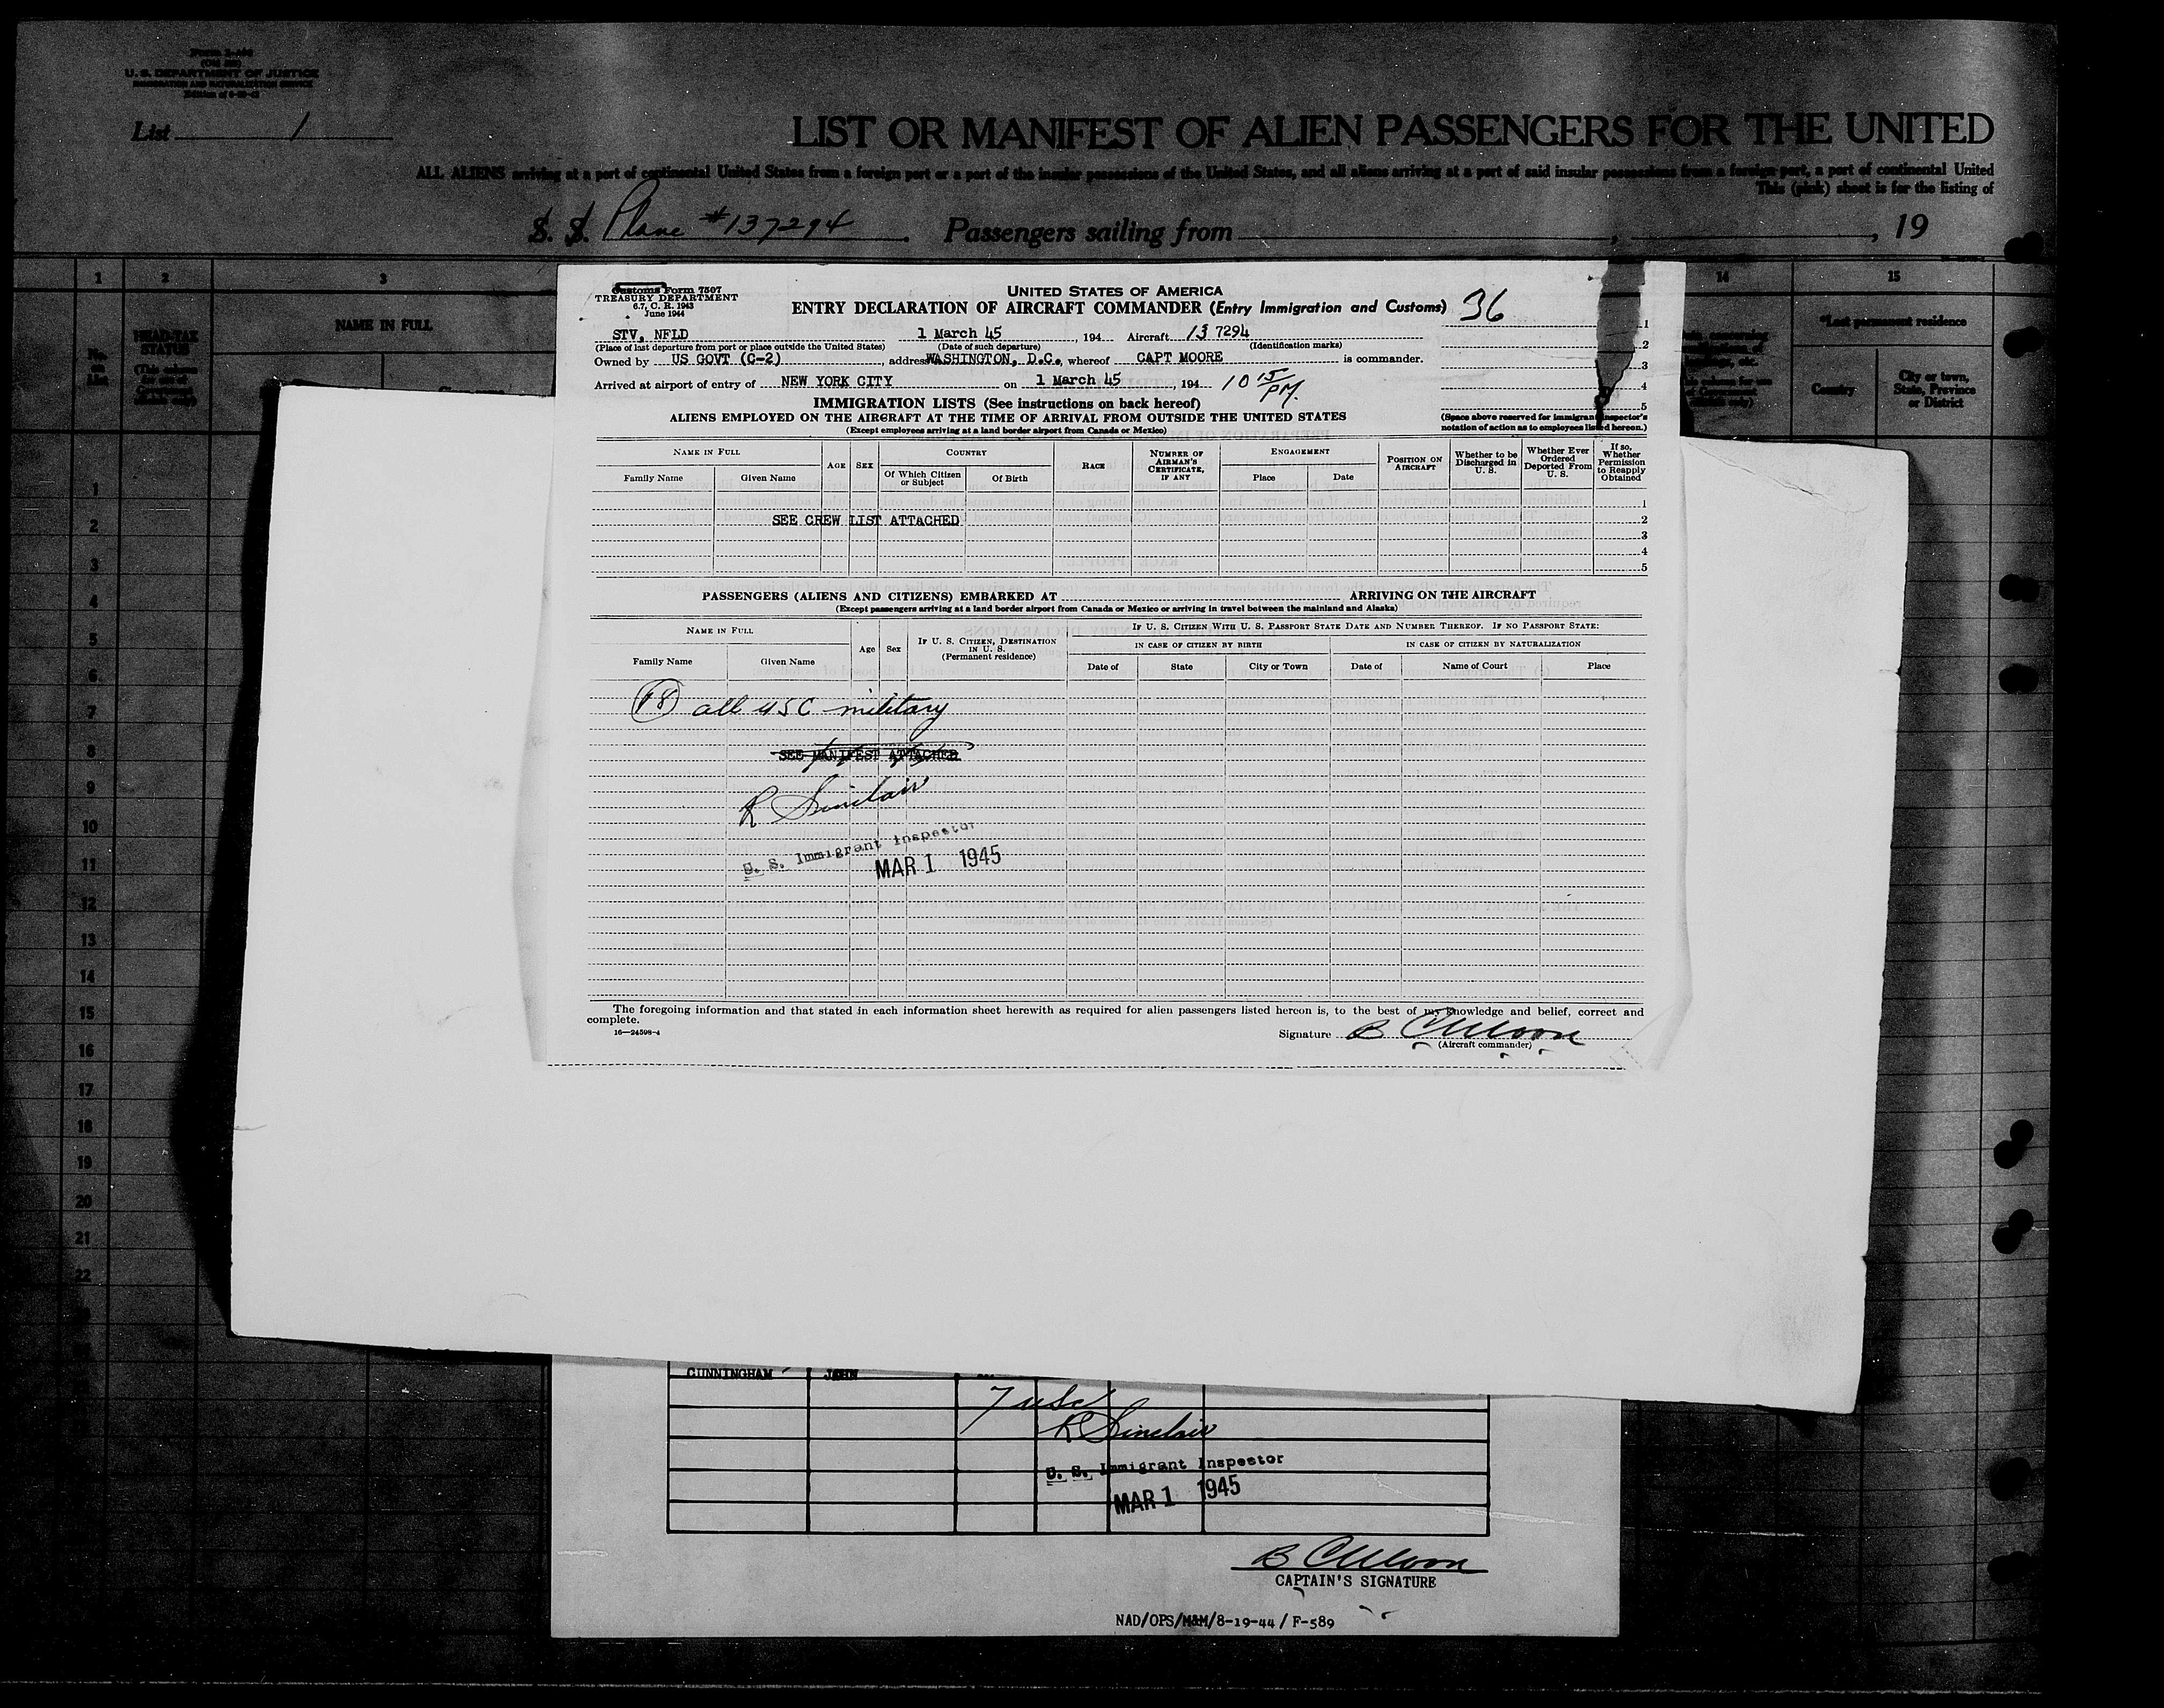 U. S. DEPARTMENT OF JUSTICE
IMMIGRATION AND NATURALIZATION SERVICE
List 1
LIST OR MANIFEST OF ALIEN PASSENGERS FOR THE UNITED
ALL ALIENS arriving at a port of continental United States from a foreign port or a port of the insular possessions of the United States, and all aliens arriving at a port of said insular possessions from a foreign port, a port of continental United
This (pink) sheet is for the listing of
S. S. Plane #137294 Passengers sailing from , , 19
1 2 3 14 15
HEAD-TAX STATUS
NAME IN FULL
*Last permanent residence
No. on List
Country
City or town, State, Province or District
Customs Form 7507
TREASURY DEPARTMENT
6.7, C. R. 1943
June 1944
UNITED STATES OF AMERICA
ENTRY DECLARATION OF AIRCRAFT COMMANDER (Entry Immigration and Customs) 36
STV, NFLD 1 March 45, 194 Aircraft 13 7294
(Place of last departure from port or place outside the United States) (Date of such departure) (Identification marks)
Owned by US GOVT (C-2), address WASHINGTON, D.C., whereof CAPT MOORE is commander.
Arrived at airport of entry of NEW YORK CITY on 1 March 45, 194 10 15/PM.
IMMIGRATION LISTS (See instructions on back hereof)
ALIENS EMPLOYED ON THE AIRCRAFT AT THE TIME OF ARRIVAL FROM OUTSIDE THE UNITED STATES
(Except employees arriving at a land border airport from Canada or Mexico)
1
2
3
4
5
(Space above reserved for immigrant inspector's
notation of action as to employees listed hereon.)
NAME IN FULL
Family Name Given Name
AGE SEX
COUNTRY
Of Which Citizen or Subject
Of Birth
RACE
NUMBER OF AIRMAN'S CERTIFICATE, IF ANY
ENGAGEMENT
Place Date
POSITION ON AIRCRAFT
Whether to be Discharged in U. S.
Whether Ever Ordered Deported From U. S.
If so, Whether Permission to Reapply Obtained
1
SEE CREW LIST ATTACHED 2
3
4
5
PASSENGERS (ALIENS AND CITIZENS) EMBARKED AT ARRIVING ON THE AIRCRAFT
(Except passengers arriving at a land border airport from Canada or Mexico or arriving in travel between the mainland and Alaska)
NAME IN FULL
Family Name Given Name
Age Sex
IF U. S. CITIZEN, DESTINATION IN U. S.
(Permanent residence)
IF U. S. CITIZEN WITH U. S. PASSPORT STATE DATE AND NUMBER THEREOF. IF NO PASSPORT STATE:
IN CASE OF CITIZEN BY BIRTH IN CASE OF CITIZEN BY NATURALIZATION
Date of State City or Town Date of Name of Court Place
(18) all USC military
SEE MANIFEST ATTACHED
R Sinclair
U. S. Immigrant Inspector
MAR 1 1945
The foregoing information and that stated in each information sheet herewith as required for alien passengers listed hereon is, to the best of my knowledge and belief, correct and
complete.
16—24598-4
Signature B C Moore
(Aircraft commander)
1
2
3
4
5
6
7
8
9
10
11
12
13
14
15
16
17
18
19
20
21
22
CUNNINGHAM JOHN
7 usc
R Sinclair
U. S. Immigrant Inspector
MAR 1 1945
B C Moore
CAPTAIN'S SIGNATURE
NAD/OPS/M&M/8-19-44 / F-589